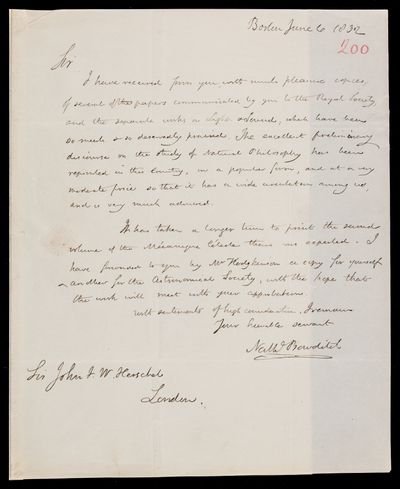 Boston June 6 1832
200
Sir
I have received from you with much pleasure copies
of several of the papers communicated by you to the Royal Society,
and the separate works on Light & Sound, which have been
so much & so deservedly praised. The excellent preliminary
discourse on the study of Natural Philosophy has been
reprinted in this Country, in a popular form, and at a very
moderate price so that it has a wide circulation among us,
and is very much admired.
It has taken a longer time to print the second
volume of the Mécanique Céleste than was expected. I
have forwarded to you by Mr Hodgkinson a copy for yourself
& another for the Astronomical Society, with the hope that
the work will meet with your approbation.
With sentiments of high consideration, I remain
Your humble servant
Nathl Bowditch
Sir John F. W. Herschel
London.